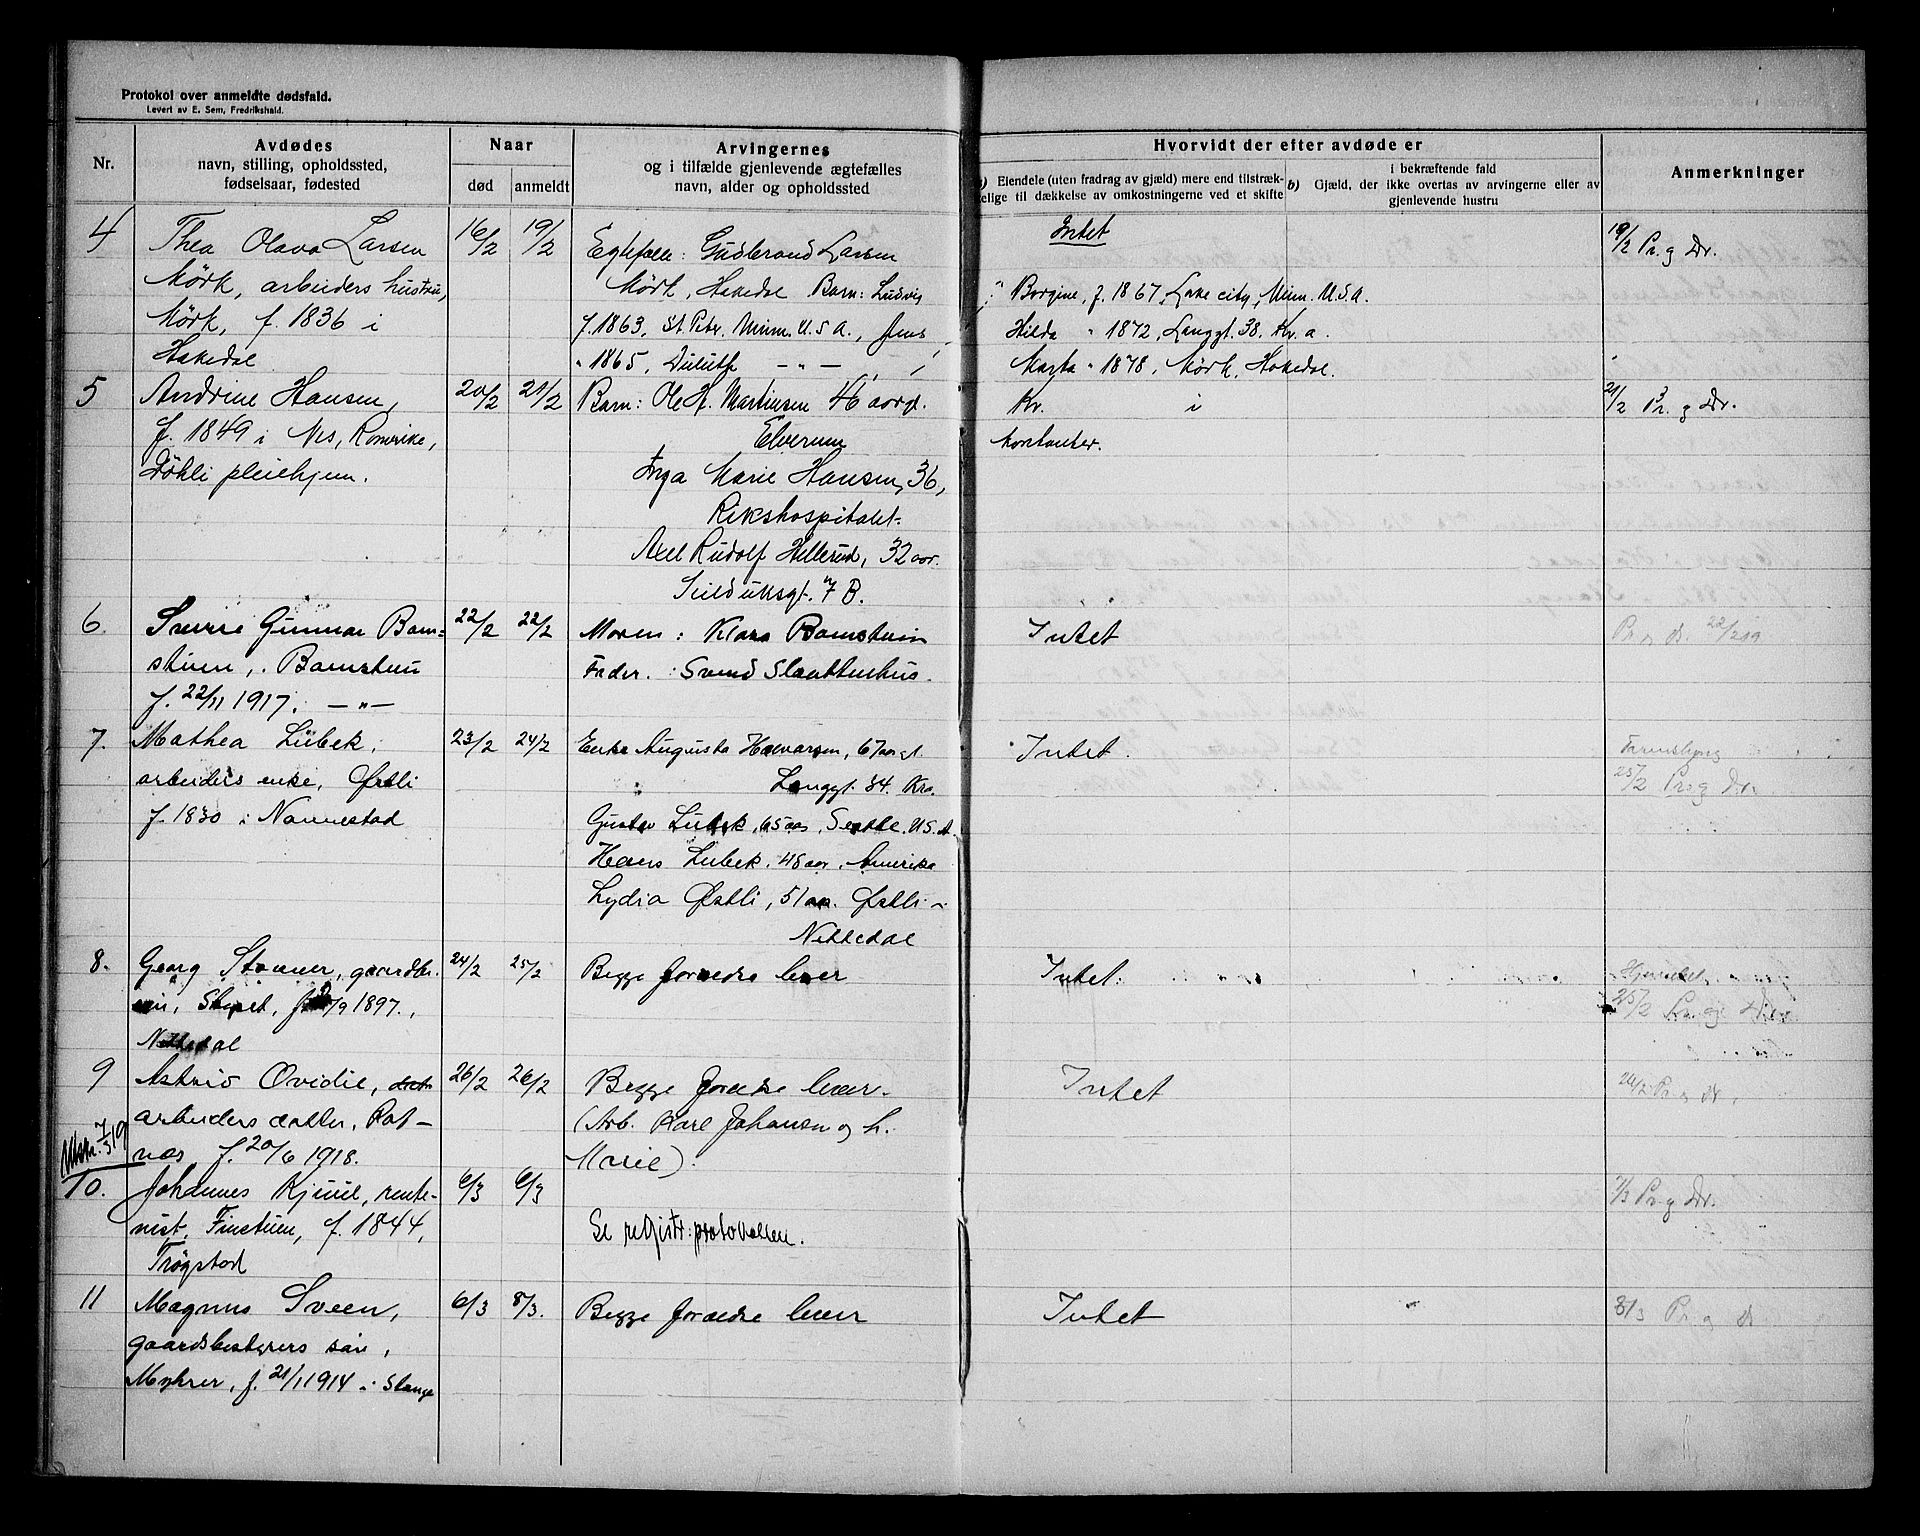 Protokol over anmeldte dødsfald.
Levert av E. Sem, Fredrikshald.
Nr.
Avdødes
navn, stilling, opholdssted,
fødselsaar, fødested
Naar
død
anmeldt
Arvingernes
og i tilfælde gjenlevende ægtefælles
navn, alder og opholdssted
Hvorvidt der efter avdøde er
a) Eiendele (uten fradrag av gjæld) mere end tilstræk-
kelige til dækkelse av omkostningerne ved et skifte
i bekræftende fald
b) Gjæld, der ikke overtas av arvingerne eller av
gjenlevende hustru
Anmerkninger
4
Thea Olava Larsen
Mörk, arbeiders hustru,
Mörk, f. 1836 i
Hakedal
16/2
19/2
Egtefælle: Gudbrand Larsen
Mörk, Hakedal Barn: Ludvig
f. 1863, St. Petr. Minn. U.S.A., Jens
" 1865, Duluth — " —
Intet
Borgine, f. 1867, Lake city, Minn. U.S.A.
Hilda " 1872, Langgt. 38. Kr.a.
Marta " 1878, Mörk, Hakedal.
19/2 Pr. g Dr.
5
Andrine Hansen,
f. 1849 i Nes, Romerike,
Döhli pleiehjem.
20/2
21/2
Barn: Ole H. Martinsen 46 aar gl.
Elverum
Inga Marie Hansen, 36,
Rikshospitalet
Axel Rudolf Hillerud, 32 aar.
Seilduksgt. 7 B.
Kr. i
kontanter.
21/2 Pr. g Dr.
6.
Sverre Gunnar Bam=
stuen, Bamstuen
f. 22/11 1917. — " —
22/2
22/2
Moren: Klara Bamstuen
Fader: Svend Slaattenhus.
Intet
Pr. g. dr. 22/2 19
7.
Mathea Lübek,
arbeiders enke, Østli
f. 1830 i Nannestad
23/2
24/2
Enke Augusta Halvorsen, 67 aar gl.
Langgt. 34. Kra.
Gustav Lübek, 65 aar, Seattle. U.S.A.
Hans Lübek. 48 aar. Amerika
Lydia Østli, 51 aar. Østli i
Nittedal
Intet.
25/2 Pr. g Dr.
8.
Georg Stamer, gaardbr.
Skyset, /9 1897.,
Nittedal
24/2
25/2
Begge foraedre lever
Intet.
25/2 Pr. g Dr.
9
Astrid Ovidie, dat
arbeiders datter, Rot-
nes f. 20/6 1918.
26/2
26/2
Begge foraedre lever.
(Arb. Karl Johansen og h.
Marie).
Intet
26/2 Pr. g Dr.
7/3 19
10.
Johannes Kjuul, rente-
nist, f. 1844,
Trøgstad
6/3
6/3
Se registr: protokollen.
7/3 Pr. g Dr.
11
Magnus Sveen,
gaardsbestyrers sön,
Myhrer, f. 21/1 1914 i Stange
6/3
8/3.
Begge foraedre lever
Intet
8/3 Pr. g Dr